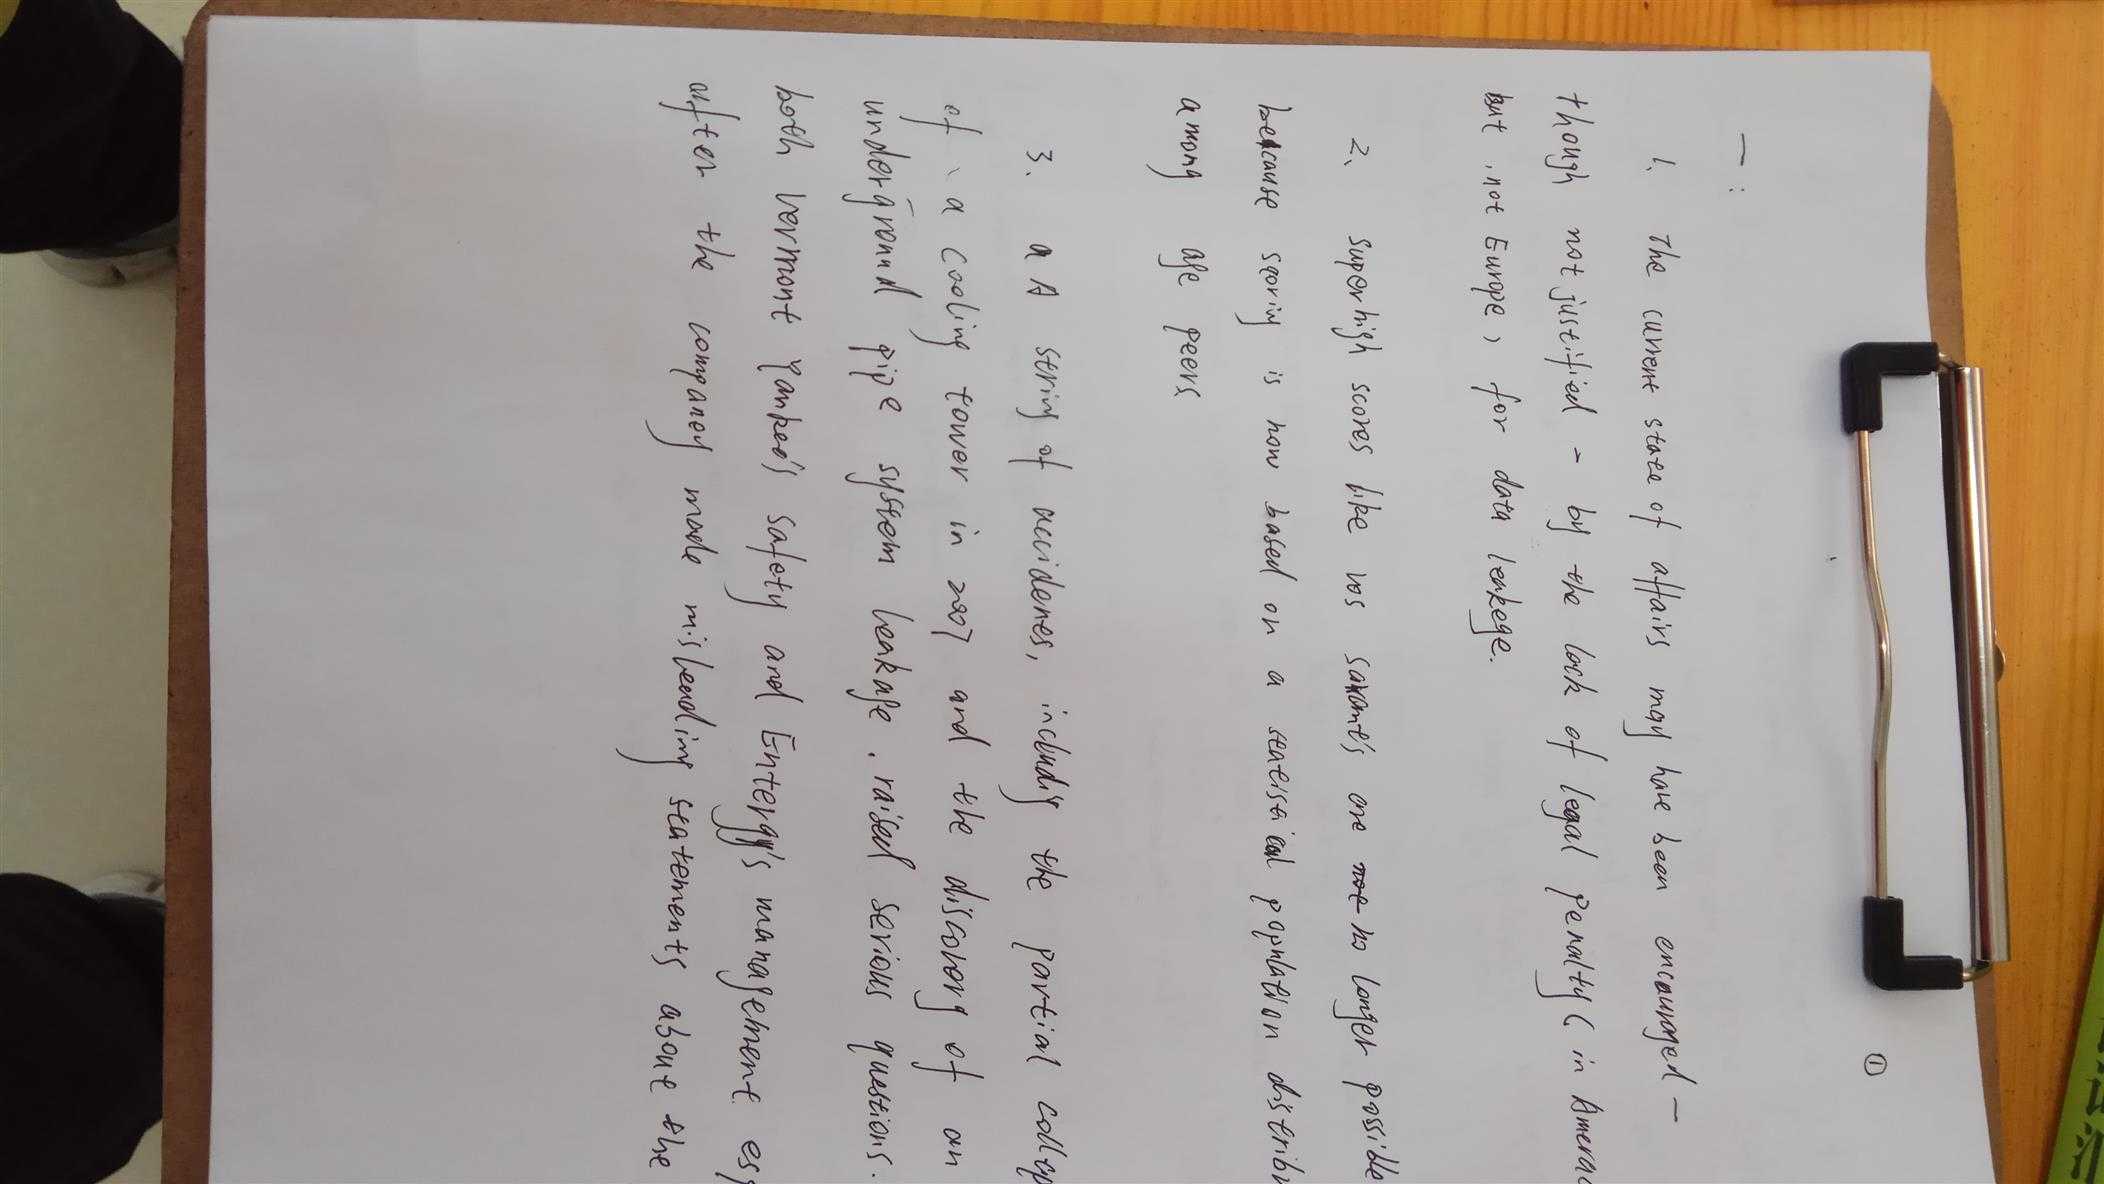 ①
一:
1. The current state of affairs may have been encouraged –
though not justified – by the lack of legal penalty (in America
but not Europe) for data leakege.
2. superhigh scores like vos savant's are no longer possible
because scoring is now based on a statistical population distribu
among age peers
3. a A string of accidents, including the partial collap
of a cooling tower in 2007 and the discovery of an
underground pipe system leakage, raised serious questions.
both vermont Yankee's safety and Entergy's management esp
after the company made misleading statements about the